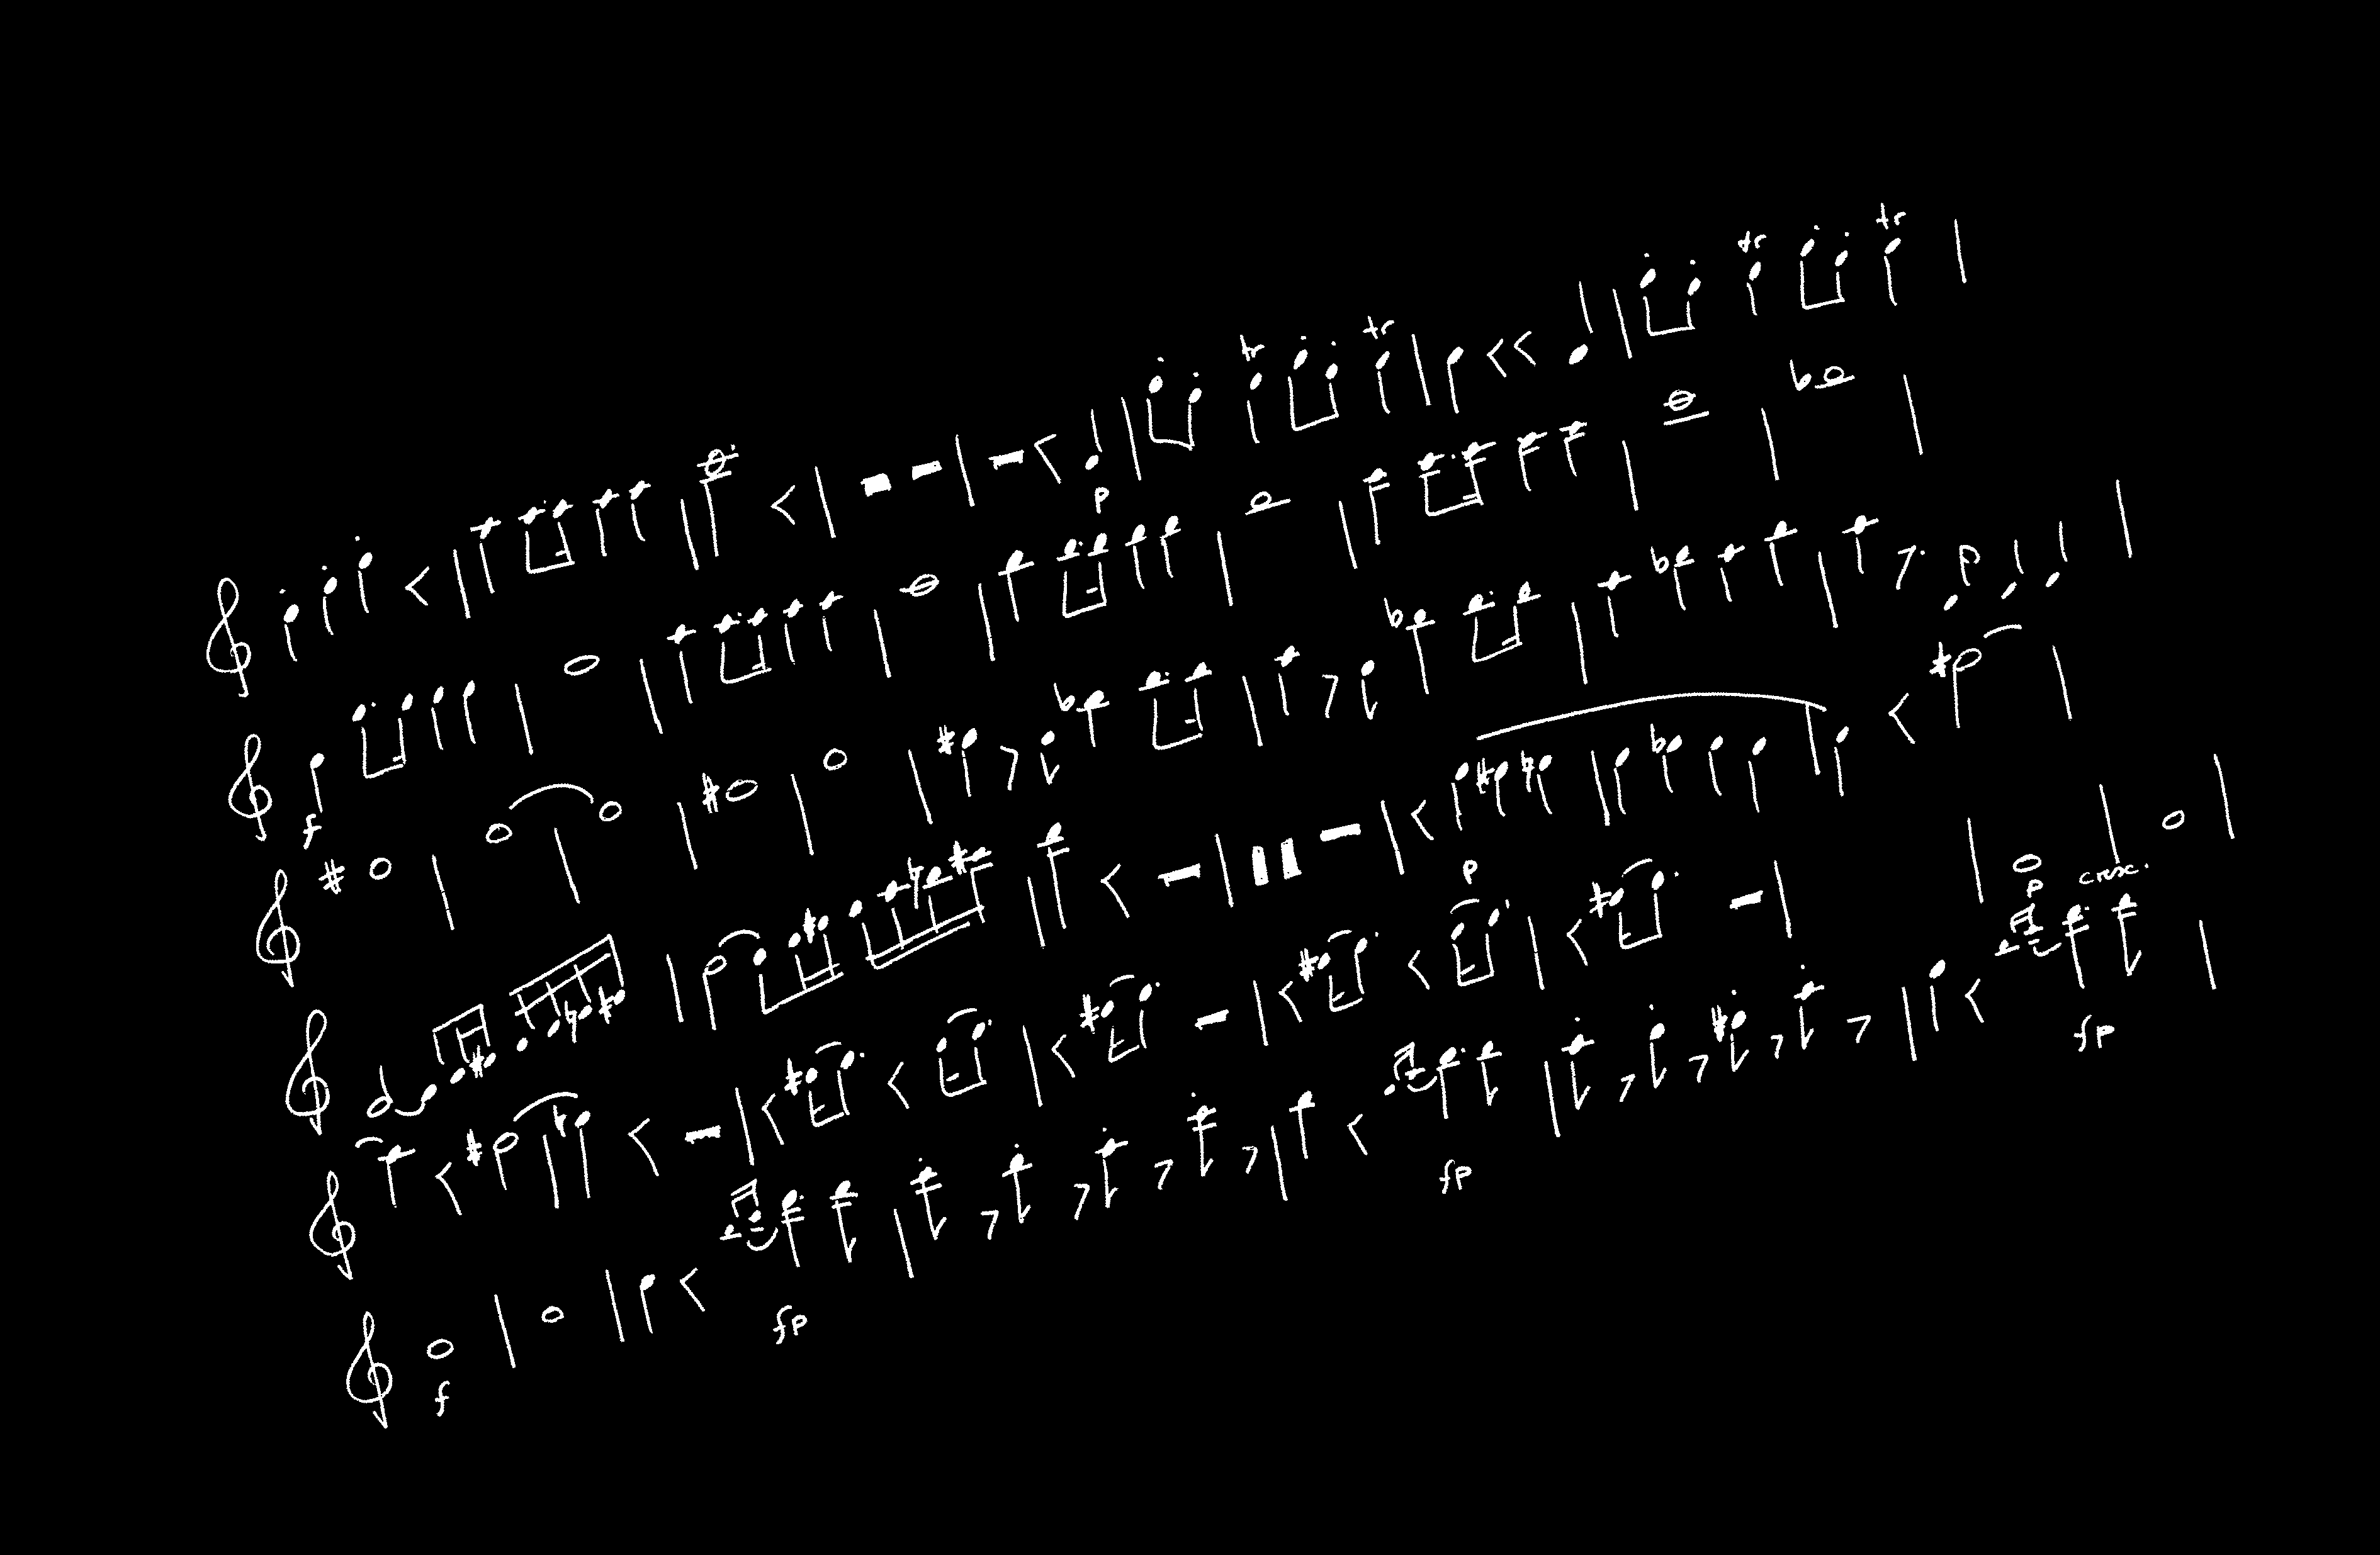 tr tr tr tr
p
f
p
p
p cresc.
fp
fp
f fp